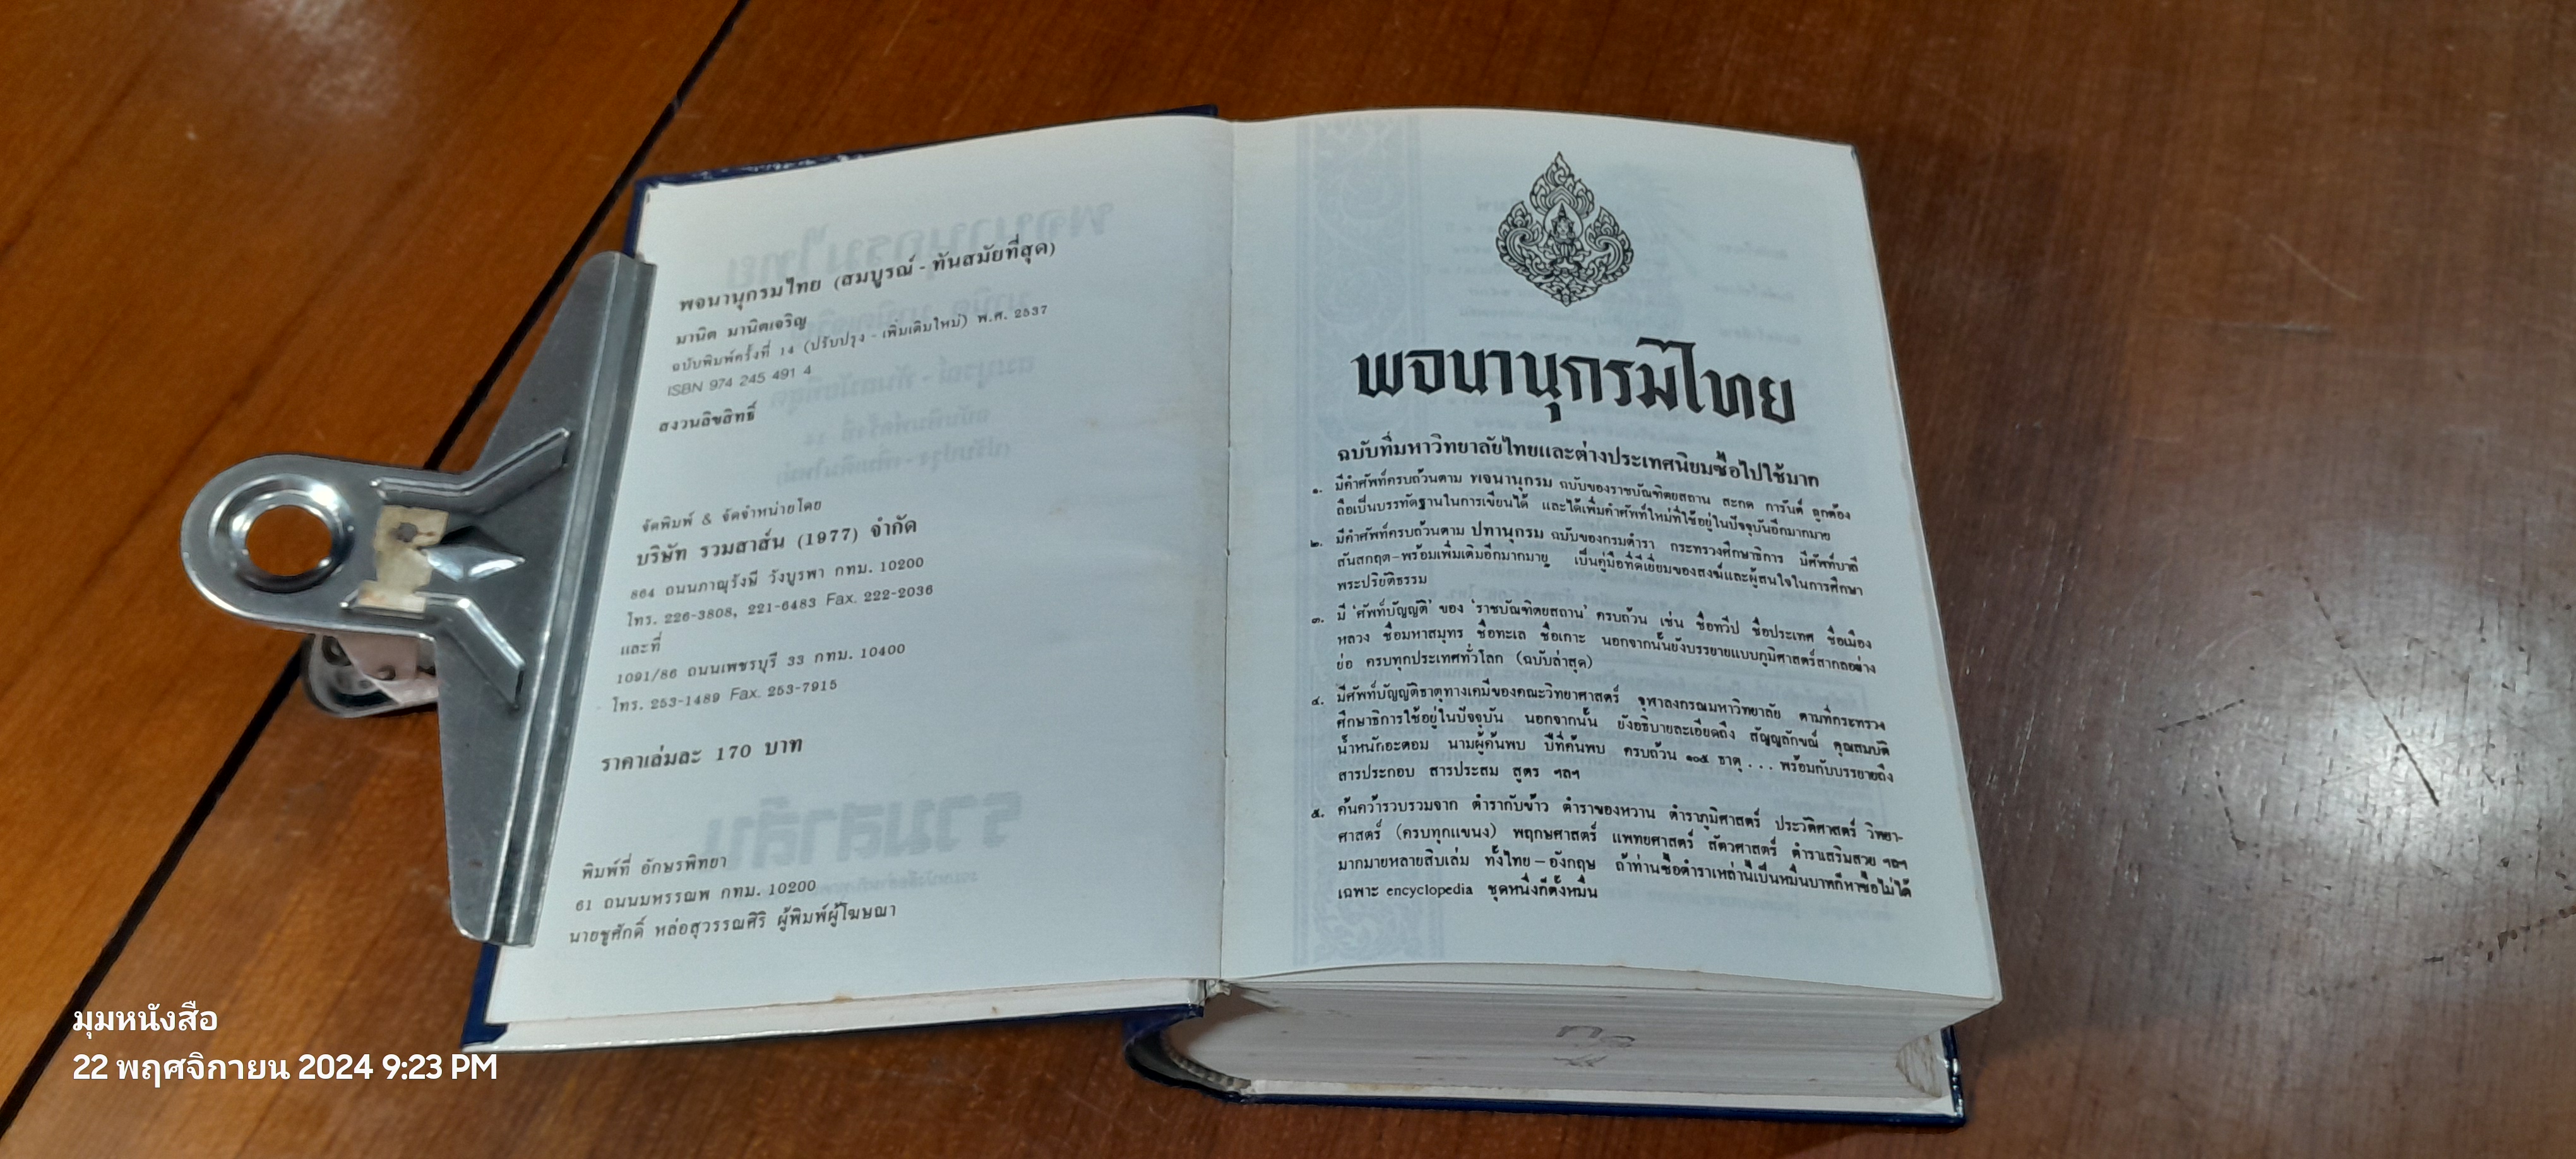 พจนานุกรมไทย (สมบูรณ์ - ทันสมัยที่สุด)
มานิต มานิตเจริญ
ฉบับพิมพ์ครั้งที่ 14 (ปรับปรุง - เพิ่มเติมใหม่) พ.ศ. 2537
ISBN 974 245 491 4
สงวนลิขสิทธิ์
จัดพิมพ์ & จัดจำหน่ายโดย
บริษัท รวมสาส์น (1977) จำกัด
864 ถนนภาณุรังษี วังบูรพา กทม. 10200
โทร. 226-3808, 221-6483 Fax. 222-2036
และที่
1091/86 ถนนเพชรบุรี 33 กทม. 10400
โทร. 253-1489 Fax. 253-7915
ราคาเล่มละ 170 บาท
พิมพ์ที่ อักษรพิทยา
61 ถนนมหรรณพ กทม. 10200
นายชูศักดิ์ หล่อสุวรรณศิริ ผู้พิมพ์ผู้โฆษณา
พจนานุกรมไทย
ฉบับที่มหาวิทยาลัยไทยและต่างประเทศนิยมซื้อไปใช้มาก
๑. มีคำศัพท์ครบถ้วนตาม พจนานุกรม ฉบับของราชบัณฑิตยสถาน สะกด การันต์ ถูกต้อง
ถือเป็นบรรทัดฐานในการเขียนได้ และได้เพิ่มคำศัพท์ใหม่ที่ใช้อยู่ในปัจจุบันอีกมากมาย
๒. มีคำศัพท์ครบถ้วนตาม ปทานุกรม ฉบับของกรมตำรา กระทรวงศึกษาธิการ มีศัพท์บาลี
สันสกฤต-พร้อมเพิ่มเติมอีกมากมาย เป็นคู่มือที่ดีเยี่ยมของสงฆ์และผู้สนใจในการศึกษา
พระปริยัติธรรม
๓. มี 'ศัพท์บัญญัติ' ของ 'ราชบัณฑิตยสถาน' ครบถ้วน เช่น ชื่อทวีป ชื่อประเทศ ชื่อเมือง
หลวง ชื่อมหาสมุทร ชื่อทะเล ชื่อเกาะ นอกจากนั้นยังบรรยายแบบภูมิศาสตร์สากลอย่าง
ย่อ ครบทุกประเทศทั่วโลก (ฉบับล่าสุด)
๔. มีศัพท์บัญญัติธาตุทางเคมีของคณะวิทยาศาสตร์ จุฬาลงกรณมหาวิทยาลัย ตามที่กระทรวง
ศึกษาธิการใช้อยู่ในปัจจุบัน นอกจากนั้น ยังอธิบายละเอียดถึง สัญญลักษณ์ คุณสมบัติ
น้ำหนักอะตอม นามผู้ค้นพบ ปีที่ค้นพบ ครบถ้วน ๑๐๕ ธาตุ . . . พร้อมกับบรรยายถึง
สารประกอบ สารประสม สูตร ฯลฯ
๕. ค้นคว้ารวบรวมจาก ตำรากับข้าว ตำราของหวาน ตำราภูมิศาสตร์ ประวัติศาสตร์ วิทยา-
ศาสตร์ (ครบทุกแขนง) พฤกษศาสตร์ แพทยศาสตร์ สัตวศาสตร์ ตำราเสริมสวย ฯลฯ
มากมายหลายสิบเล่ม ทั้งไทย – อังกฤษ ถ้าท่านซื้อตำราเหล่านี้เป็นหมื่นบาทก็หาซื้อไม่ได้
เฉพาะ encyclopedia ชุดหนึ่งก็ตั้งหมื่น
มุมหนังสือ
22 พฤศจิกายน 2024 9:23 PM